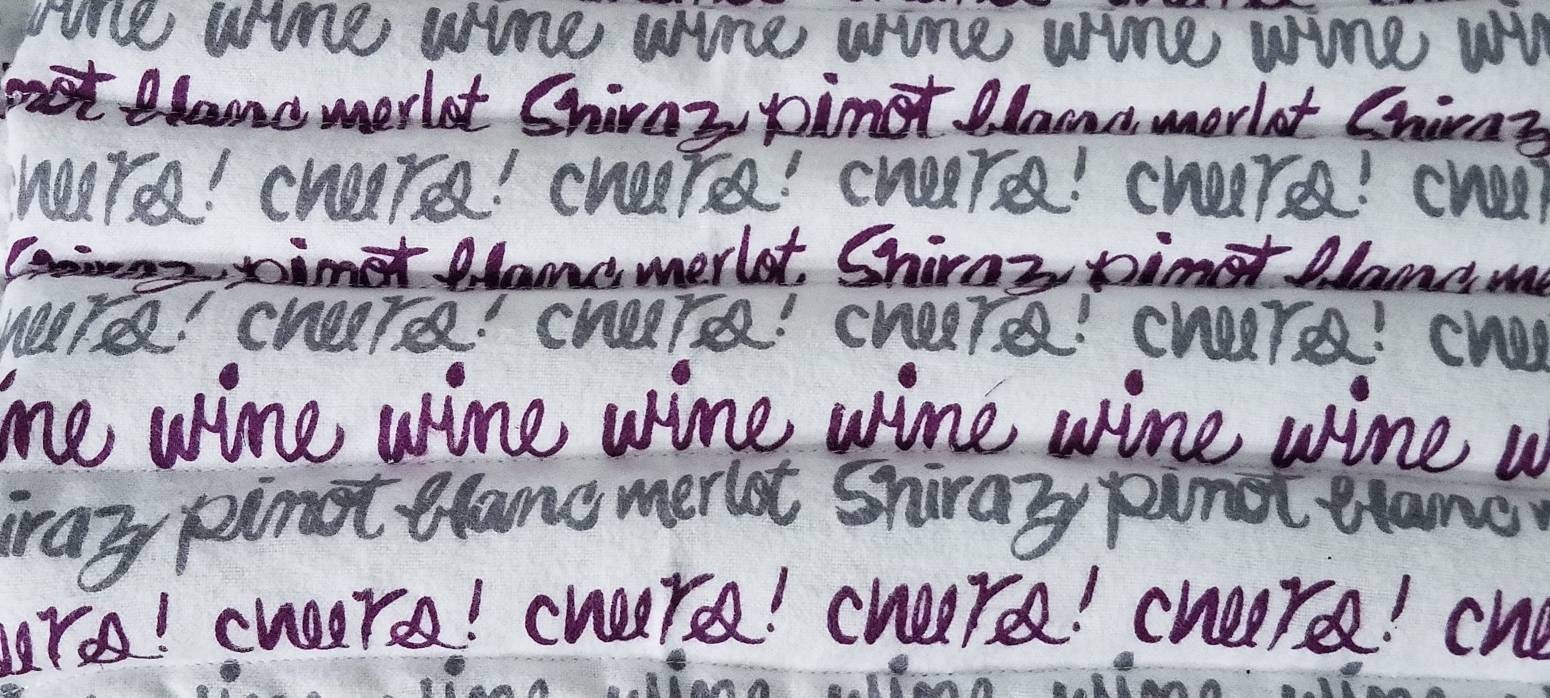 wine wine wine wine wine wine
merlot Shiraz pinot blanc merlot Shiraz
cheers! cheers! cheers! cheers!
Shiraz pinot blanc merlot Shiraz pinot blanc
cheers! cheers! cheers! cheers!
wine wine wine wine wine wine
pinot blanc merlot Shiraz pinot blanc
cheers! cheers! cheers! cheers!